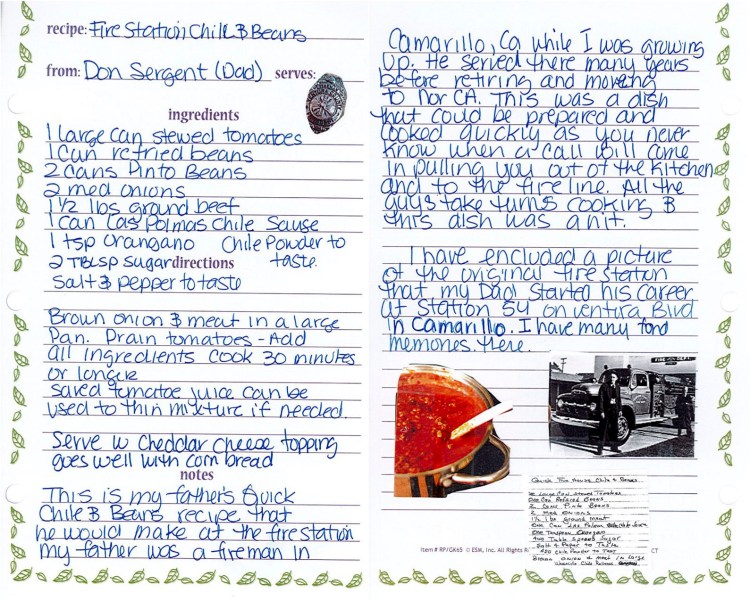 recipe: Fire Station Chile & Beans
from: Don Sergent (Dad) serves:
ingredients
1 large can stewed tomatoes
1 Can refried beans
2 cans Pinto Beans
2 med onions
1 1/2 lbs ground beef
1 can Las Polmas Chile Sause
1 tsp orangano Chile Powder to
2 TBLSP sugar directions taste.
Salt & pepper to taste
Brown onion & meat in a large
Pan. Drain tomatoes - Add
all ingredients cook 30 minutes
or longer
saved tomatoe juice can be
used to thin mixture if needed.
Serve w Cheddar cheese topping
goes well with corn bread
notes
This is my father's Quick
Chile & Beans recipe that
he would make at the fire station
my father was a fireman in
Camarillo, Ca while I was growing
up. He served there many years
before retiring and moving
to Nor CA. This was a dish
that could be prepared and
cooked quickly as you never
know when a call will come
in pulling you out of the kitchen
and to the fire line. All the
guys take turns cooking &
this dish was a hit.
I have encluded a picture
of the original fire station
that my Dad started his career
at Station 54 on Ventura Blvd
in Camarillo. I have many fond
memories there.
Quick Fire House Chile & Beans
Large Can Stewed Tomatoes
One Can Refried Beans
2 Cans Pinto Beans
2 Med onions
1 1/2 lbs ground meat
One Can Las Palmas
One Teaspoon Oregano
Two Table Spoons Sugar
Salt & Peper to Taste
Add Chile Powder to Tast
Brown onion & meat in large
Item # RP/GK65 © ESM, Inc. All Rights
CT